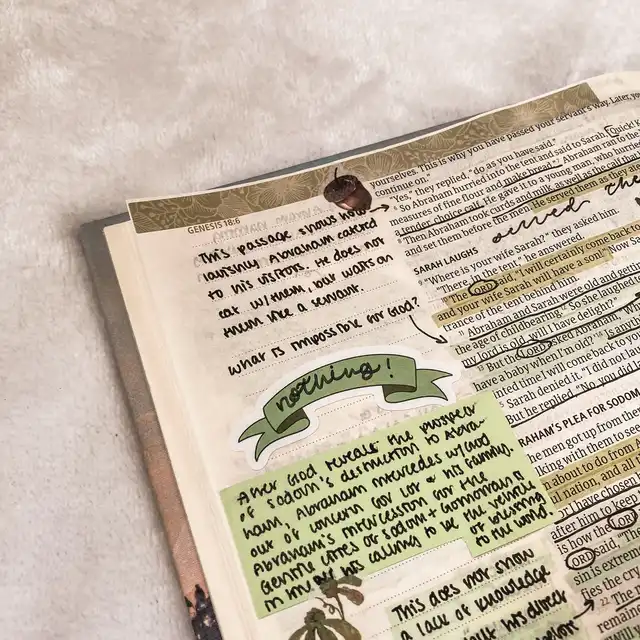 GENESIS 18:6
This passage shows how
lavishly Abraham catered
to his visitors. He does not
eat w/them, but waits on
them like a servant.
what is impossible for God?
nothing!
After God reveals the prospect
of Sodom's destruction to Abra
ham, Abraham intercedes w/God
out of concern for Lot & his family.
Abraham's intercession for the
gentile cities of Sodom + Gomorrah is
in line w/ his calling to be the vehicle
of blessing
to the world
This does not show
a lack of knowledge
his direct
yourselves. This is why you have passed your servant's way. Later, you
continue on."
"Yes," they replied, "do as you have said."
6 So Abraham hurried into the tent and said to Sarah, "Quick! K
measures of fine flour and make bread." Abraham ran to the
a tender, choice calf. He gave it to a young man, who hurried
Then Abraham took curds and milk, as well as the
and set them before the men. He served them as they
served the
SARAH LAUGHS
"Where is your wife Sarah?" they asked him.
"There, in the tent," he answered.
The LORD said, "I will certainly come back to
and your wife Sarah will have a son!" Now
trance of the tent behind him.
Abraham and Sarah were old and
the age of childbearing. So she laughed
my lord is old, will I have delight?"
But the LORD asked Abraham, "Why
have a baby when I'm old?' Is
ted time I will come back to
Sarah denied it. "I did not
But he replied, "No, you did
RAHAM'S PLEA FOR SODOM
he men got up from there
lking with them to see
am about to do from
ul nation, and all
or I have chosen
after him to keep
is how the LORD
LORD said, "The
sin is extre
fies the cry
22 The
remain